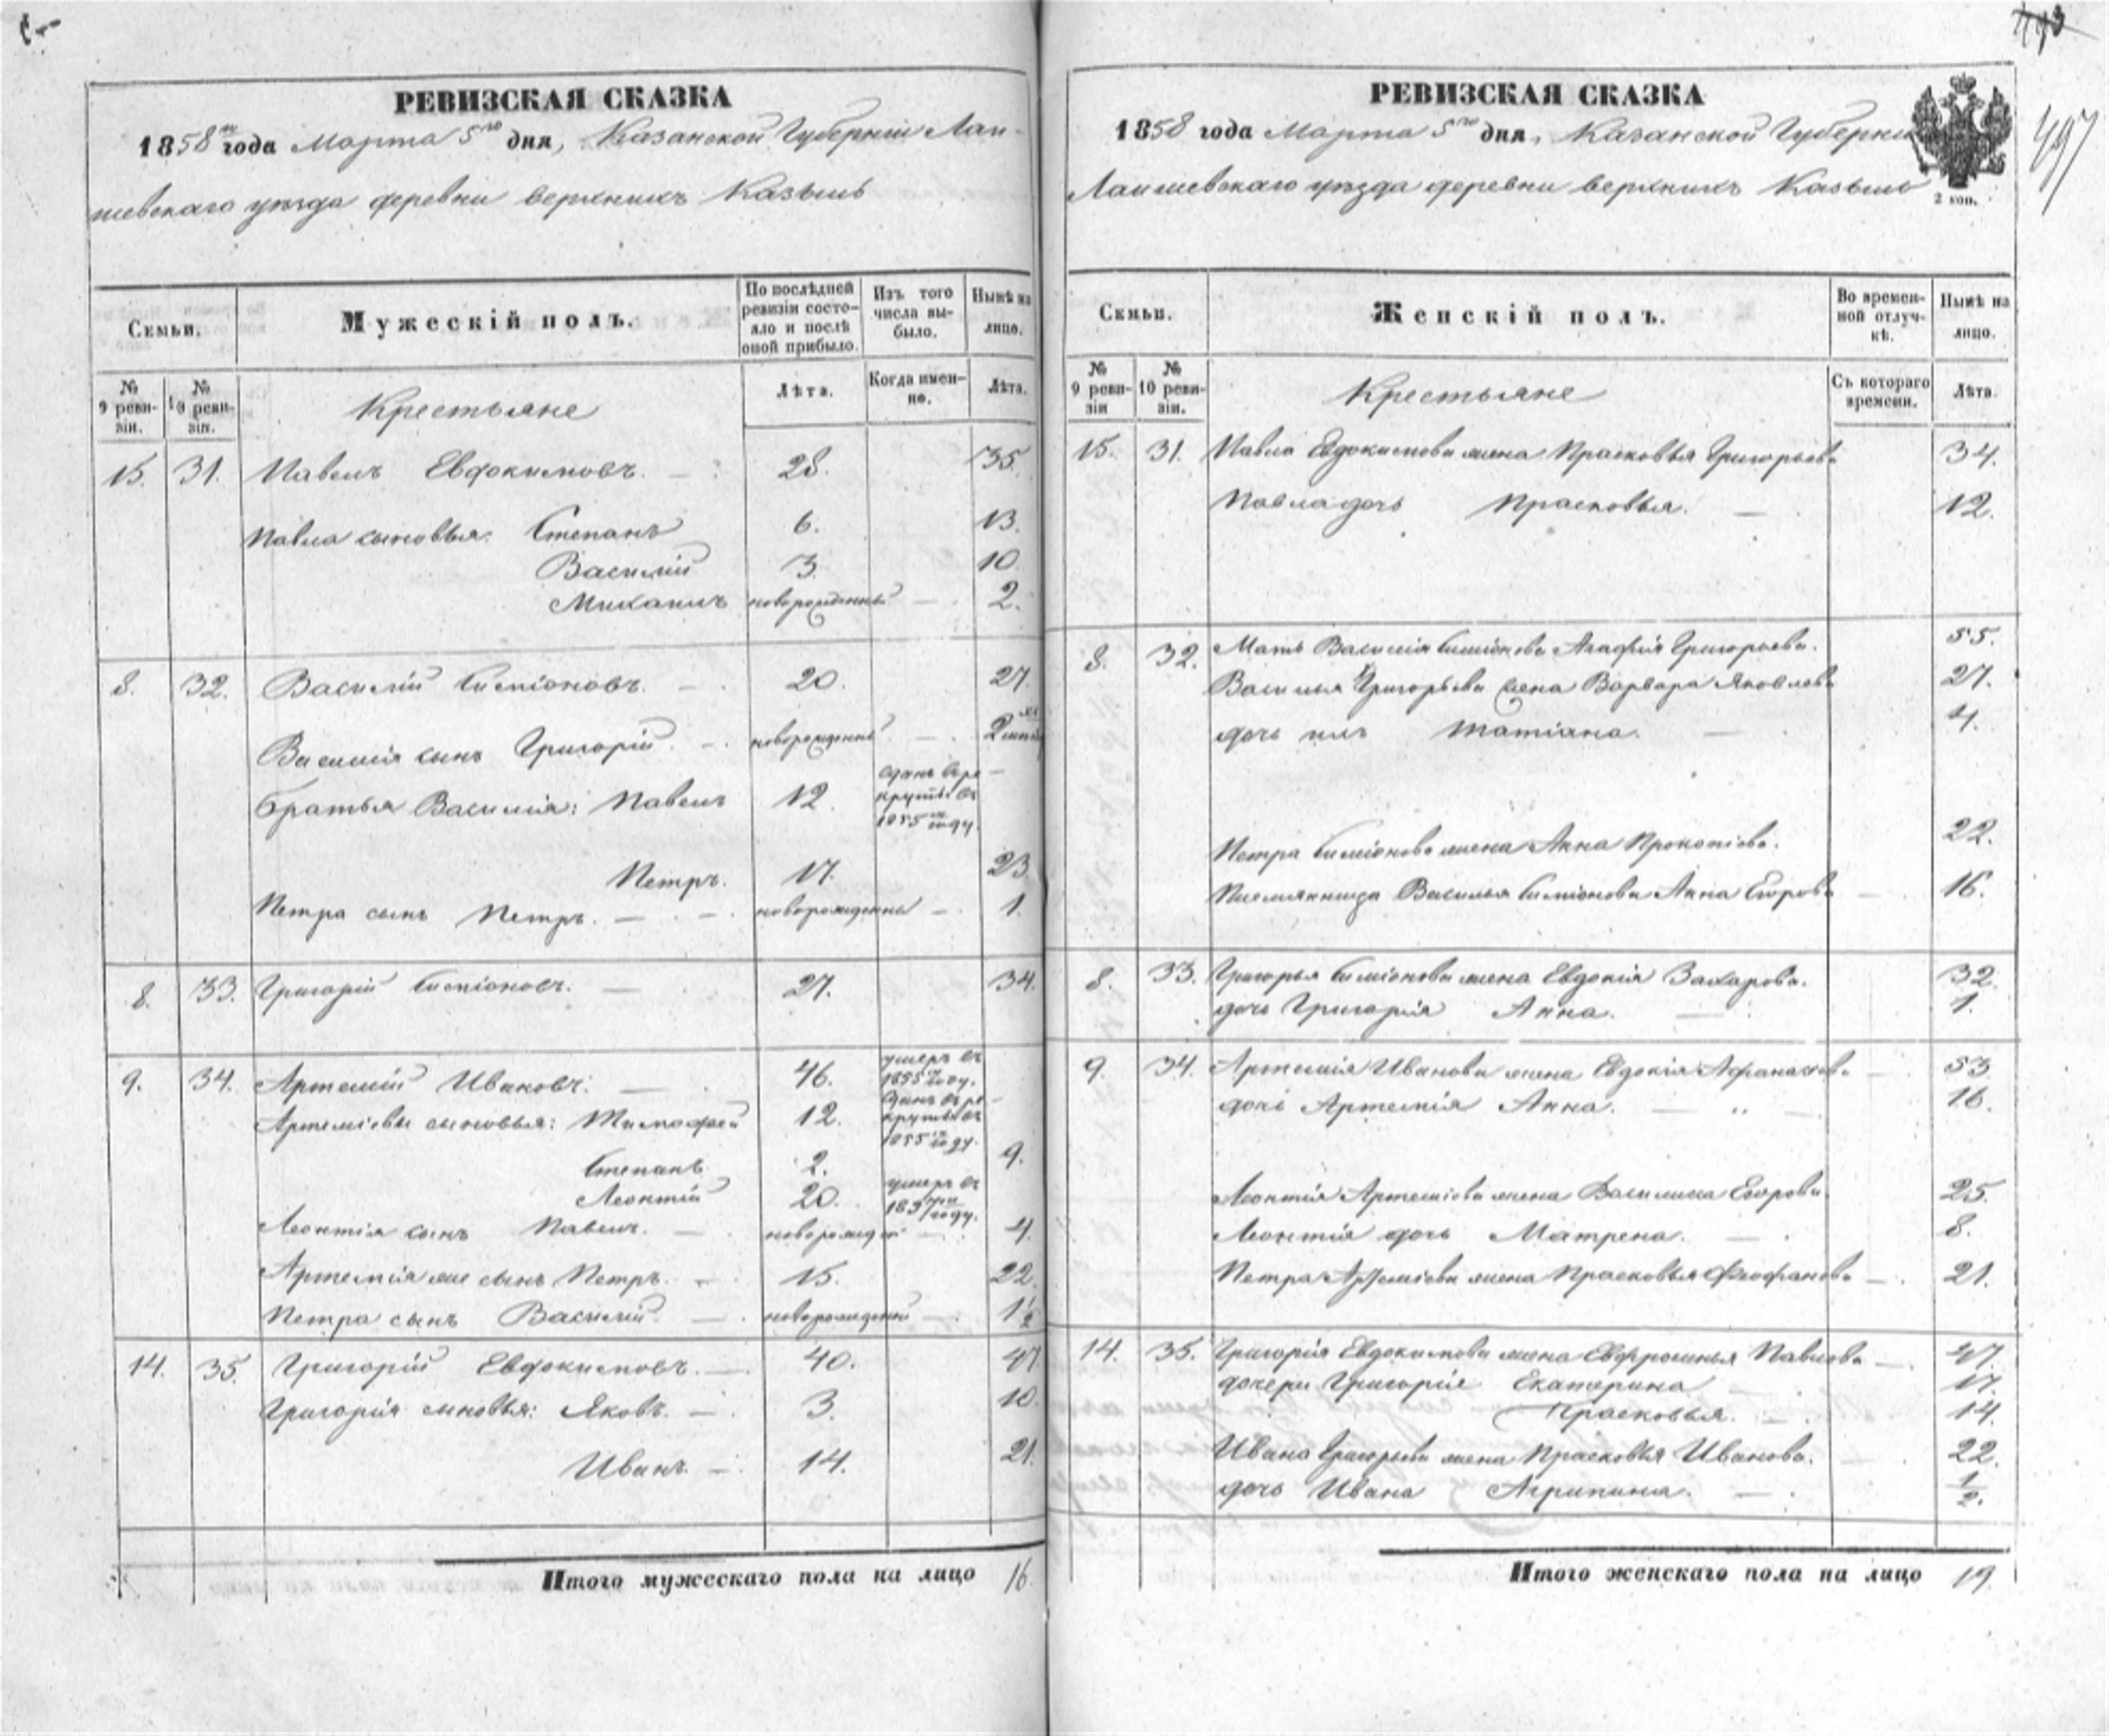 РЕВИЗСКАЯ СКАЗКА
1858го года Марта 5го дня, Казанской Губерніи Лаи-
шевскаго уѣзда деревни верхнихъ Казыль
Семьи.
Мужескій полъ.
По послѣдней ревизіи состо-яло и послѣ оной прибыло.
Изъ того числа вы-было.
Нынѣ на лицо.
№ 9 реви-зіи.
№ 10 реви-зіи.
Крестьяне
Лѣта.
Когда имен-но.
Лѣта.
15. 31. Павелъ Евдокимовъ. — 28. 35.
Павла сыновья: Степанъ 6. 13.
Василій 3. 10
Михаилъ новорожденный — 2.
8. 32. Василій Симіоновъ. — 20. 27.
Василія сынъ Григорій. — новорожденный — 2
братья Василія: Павелъ 12. сданъ въ ре-круты въ 1855м году.
Петръ. 17. 23
Петра сынъ Петръ. — новорожденны — 1.
8. 33. Григорій Симіоновъ. — 27. 34.
9. 34. Артемій Ивановъ. — 46. умеръ въ 1855м году.
Артеміевы сыновья: Тимофей 12. сданъ въ ре-круты въ 1855м году.
Степанъ 2. 9.
Леонтій 20. умеръ въ 1857м году.
Леонтія сынъ Павелъ. — новорожден — 4.
Артемія же сынъ Петръ. — 15. 22.
Петра сынъ Василій. — новорожденный — 1 1/2
14. 35. Григорій Евдокимовъ. — 40. 47.
Григорія сыновья: Яковъ. — 3. 10.
Иванъ. — 14. 21.
Итого мужескаго пола на лицо 16.
497
РЕВИЗСКАЯ СКАЗКА
1858 года Марта 5го дня, Казанской Губерни
Лаишевскаго уѣзда деревни верхнихъ Казыль
2 коп.
Семьи.
Женскій полъ.
Во времен-ной отлуч-кѣ.
Нынѣ на лицо.
№ 9 реви-зіи
№ 10 реви-зіи.
Крестьяне
Съ котораго времени.
Лѣта.
15. 31. Павла Евдокимова жена Прасковья Григорьева 34.
Павла дочь Прасковья. — 12.
8. 32. Мать Василія Симіонова Агафія Григорьева. 55.
Василья Григорьева жена Варвара Яковлева 27.
дочь ихъ Татіана. — 4.
Петра Симіонова жена Анна Прокопіева. 22.
Племянница Василья Симіонова Анна Егорова — 16.
8. 33. Григорья Симіонова жена Евдокія Захарова. 32.
дочь Григорія Анна. — 1.
9. 34. Артемія Иванова жена Евдокія Афанасьева — 53
дочь Артемія Анна. — 16.
Леонтія Артеміева жена Василиса Егорова. 25.
Леонтія дочь Матрена. — 8.
Петра Артеміева жена Прасковья Феофанова — 21.
14. 35. Григорія Евдокимова жена Евфросинья Павлова — 47.
дочери Григорія Екатерина 17.
Прасковья. — 14.
Ивана Григорьева жена Прасковья Иванова. — 22.
дочь Ивана Агрипина. — 1/2.
Итого женскаго пола на лицо 19.